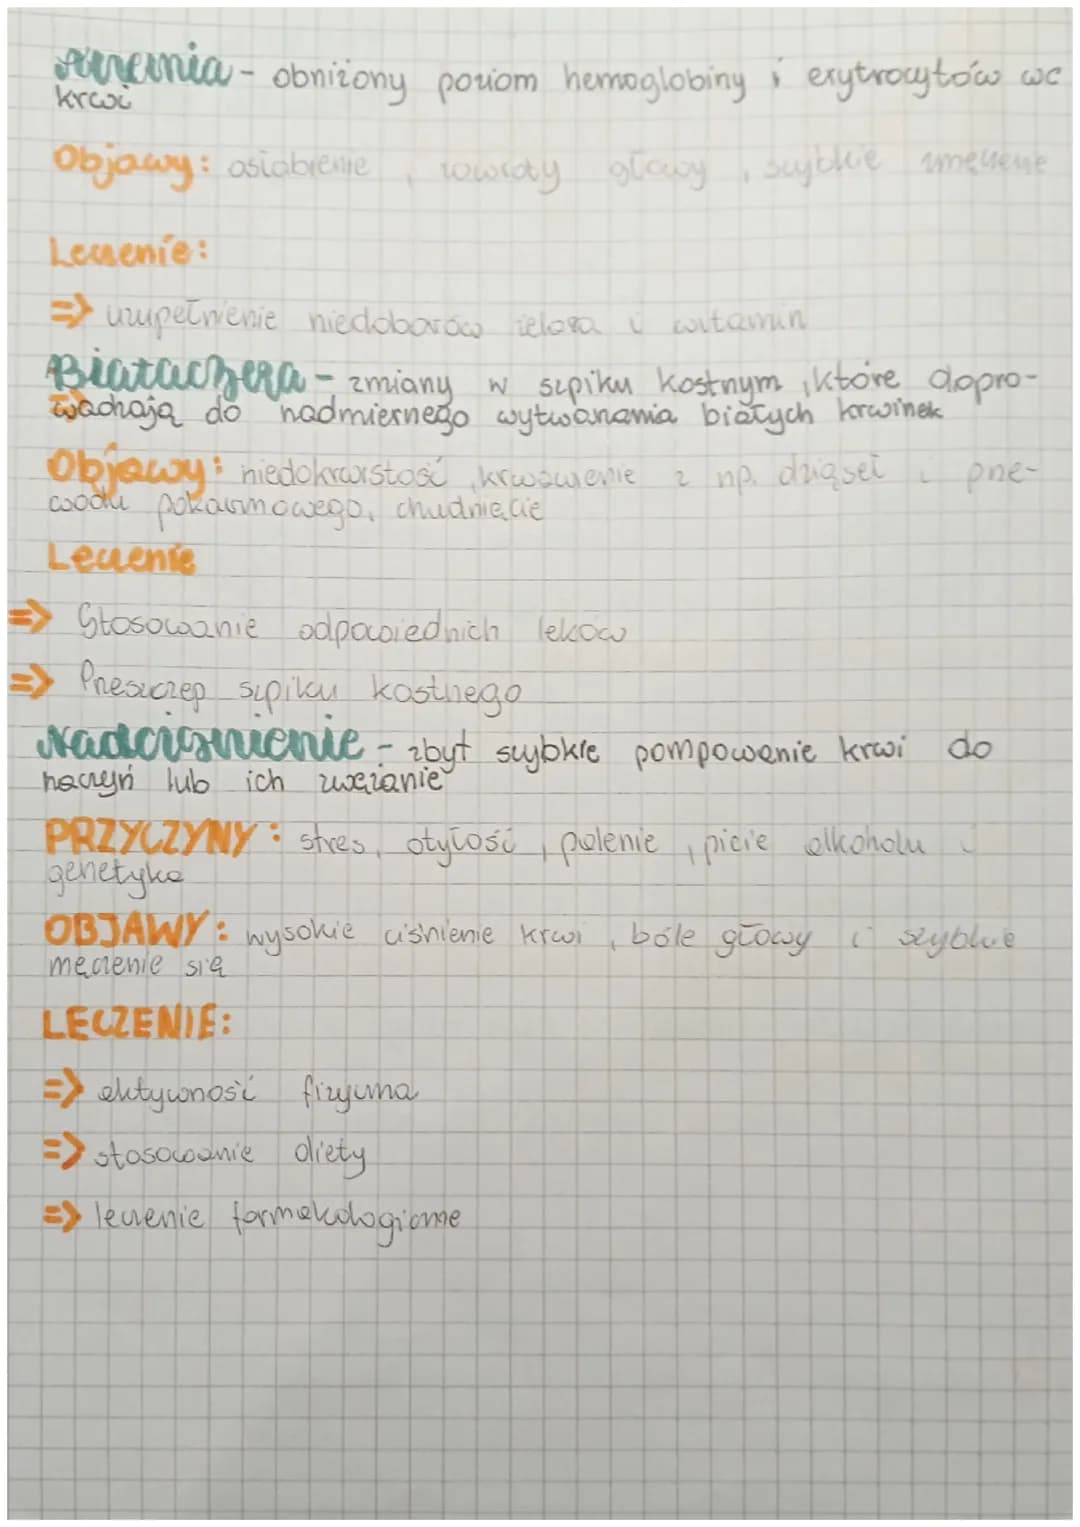 Anemia - obniżony poziom hemoglobiny i erytrocytów we
krwi
Objawy: osłabienie, zawroty głowy, szybkie zmęczenie
Leczenie:
=> uzupełnienie niedoborów żelaza i witamin
Białaczka - zmiany w szpiku kostnym, które dopro-
wadzają do nadmiernego wytwarzania białych krwinek
Objawy: niedokrwistość, krwawienie z np. dziąseł i prze-
wodu pokarmowego, chudnięcie
Leczenie
=> Stosowanie odpowiednich leków
=> Przeszczep szpiku kostnego
Nadciśnienie - zbyt szybkie pompowanie krwi do
naczyń lub ich zwężanie
PRZYCZYNY: stres, otyłość, palenie, picie alkoholu i
genetyka
OBJAWY: wysokie ciśnienie krwi, bóle głowy i szybkie
męczenie się
LECZENIE:
=> aktywność fizyczna
=> stosowanie diety
=> leczenie farmakologiczne